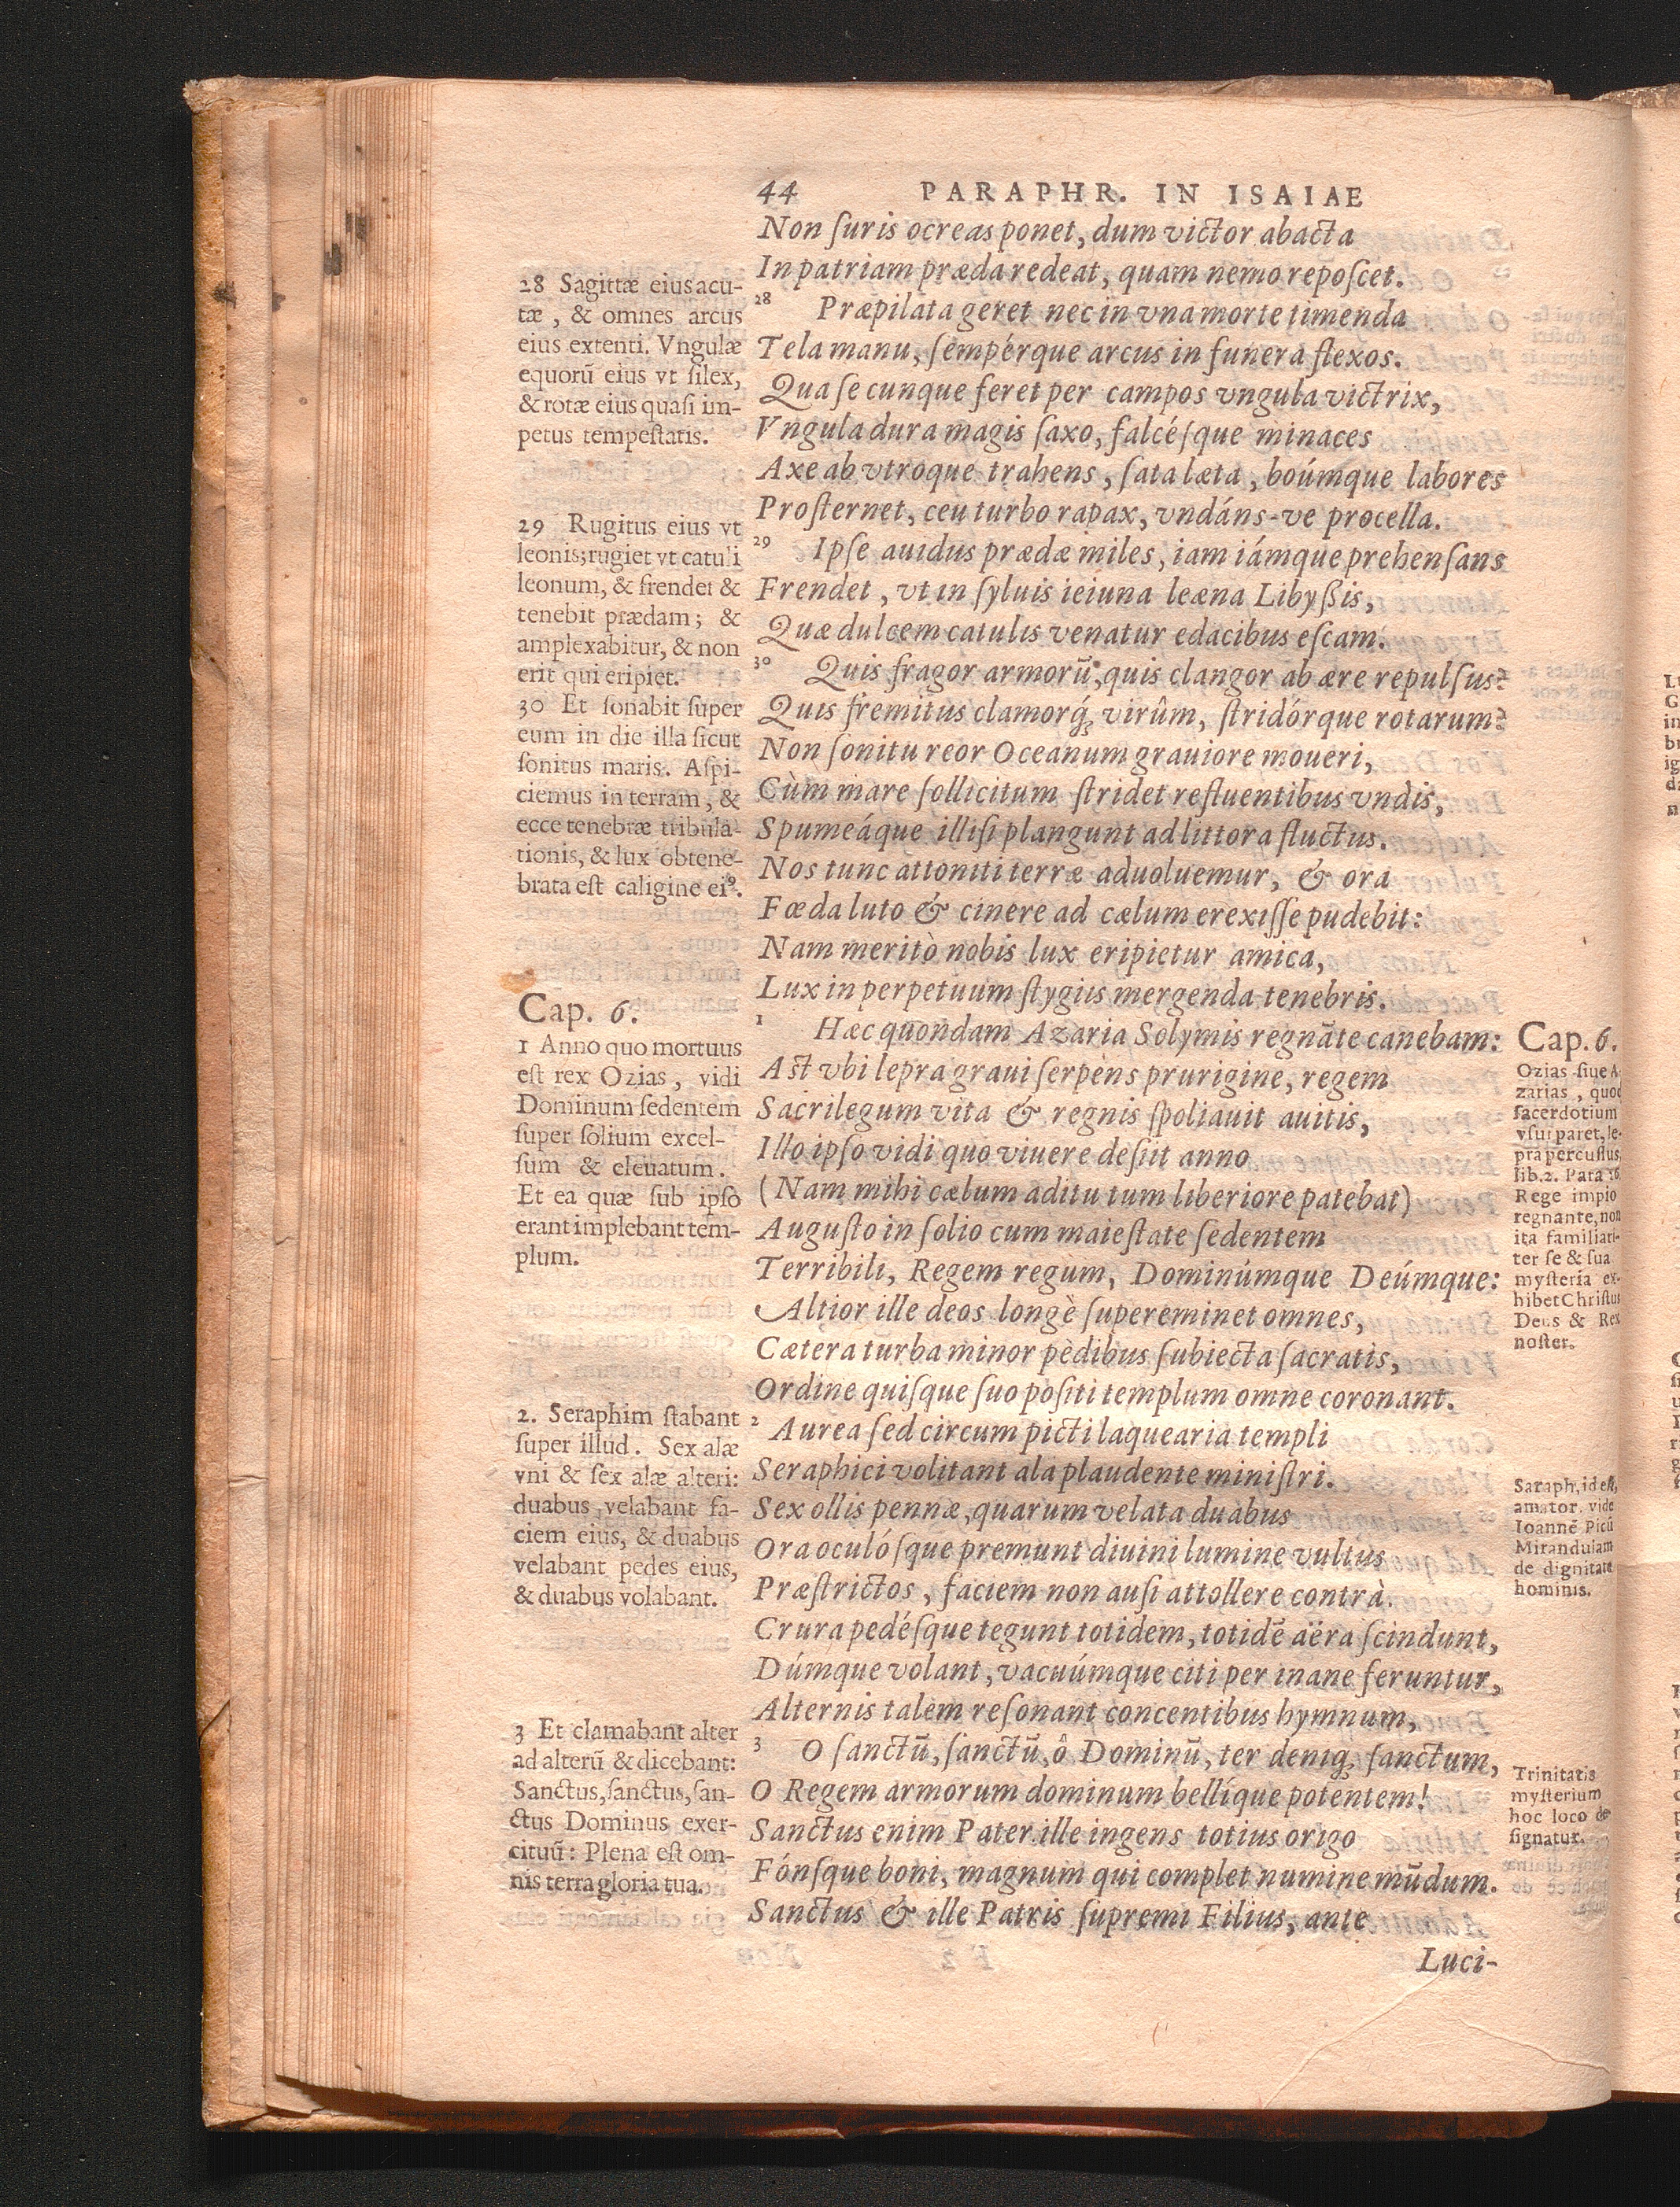 44 PARAPHR. IN ISAIAE
Non ſuris ocreas ponet, dum victor abacta
In patriam præda redeat, quam nemo repoſcet.
28 Præpilata geret nec in vna morte timenda
Tela manu, ſempérque arcus in funera flexos.
Qua ſe cunque feret per campos vngula victrix,
Vngula dura magis ſaxo, falcéſque minaces
Axe ab vtroque trahens, ſata læta, boúmque labores
Proſternet, ceu turbo rapax, vndáns-ve procella.
29 Ipſe auidus prædæ miles, iam iámque prehenſans
Frendet, vt in ſyluis ieiuna leæna Libyßis,
Quæ dulcem catulis venatur edacibus eſcam.
30 Quis fragor armorū, quis clangor ab ære repulſus?
Quis fremitus clamorq́; virûm, ſtridórque rotarum?
Non ſonitu reor Oceanum grauiore moueri,
Cùm mare ſollicitum ſtridet refluentibus vndis,
Spumeáque illiſi plangunt ad littora fluctus.
Nos tunc attoniti terræ aduoluemur, & ora
Fœda luto & cinere ad cælum erexiſſe pudebit:
Nam meritò nobis lux eripietur amica,
Lux in perpetuum ſtygiis mergenda tenebris.
1 Hæc quondam Azaria Solymis regnāte canebam:
Aſt vbi lepra graui ſerpens prurigine, regem
Sacrilegum vita & regnis ſpoliauit auitis,
Illo ipſo vidi quo viuere deſiit anno
(Nam mihi cælum aditu tum liberiore patebat)
Auguſto in ſolio cum maieſtate ſedentem
Terribili, Regem regum, Dominúmque Deúmque:
Altior ille deos longè ſupereminet omnes,
Cætera turba minor pedibus ſubiecta ſacratis,
Ordine quiſque ſuo poſiti templum omne coronant.
2 Aurea ſed circum picti laquearia templi
Seraphici volitant ala plaudente miniſtri.
Sex ollis pennæ, quarum velata duabus
Ora oculóſque premunt diuini lumine vultus
Præſtrictos, faciem non auſi attollere contrà.
Crura pedéſque tegunt totidem, totidē aëra ſcindunt,
Dúmque volant, vacuúmque citi per inane feruntur,
Alternis talem reſonant concentibus hymnum,
3 O ſanctū, ſanctū, ô Dominū, ter deniq; ſanctum,
O Regem armorum dominum bellíque potentem!
Sanctus enim Pater ille ingens totius origo
Fónſque boni, magnum qui complet numine mūdum.
Sanctus & ille Patris ſupremi Filius, ante
Luci-
28 Sagittæ eius acu-
tæ, & omnes arcus
eius extenti. Vngulæ
equorū eius vt ſilex,
& rotæ eius quaſi im-
petus tempeſtatis.
29 Rugitus eius vt
leonis; rugiet vt catuli
leonum, & frendet &
tenebit prædam; &
amplexabitur, & non
erit qui eripiet.
30 Et ſonabit ſuper
eum in die illa ſicut
ſonitus maris. Aſpi-
ciemus in terram, &
ecce tenebræ tribula-
tionis, & lux obtene-
brata eſt caligine eiꝰ.
Cap. 6.
1 Anno quo mortuus
eſt rex Ozias, vidi
Dominum ſedentem
ſuper ſolium excel-
ſum & eleuatum.
Et ea quæ ſub ipſo
erant implebant tem-
plum.
2. Seraphim ſtabant
ſuper illud. Sex alæ
vni & ſex alæ alteri:
duabus velabant fa-
ciem eius, & duabus
velabant pedes eius,
& duabus volabant.
3 Et clamabant alter
ad alterū & dicebant:
Sanctus, ſanctus, ſan-
ctus Dominus exer-
cituū: Plena eſt om-
nis terra gloria tua.
Cap. 6.
Ozias ſiue A-
zarias, quod
ſacerdotium
vſurparet, le-
pra percuſſus,
lib. 2. Para 26.
Rege impio
regnante, non
ita familiari-
ter ſe & ſua
myſteria ex-
hibet Chriſtus
Deus & Rex
noſter.
Saraph, id eſt,
amator. vide
Ioannē Picū
Mirandulam
de dignitate
hominis.
Trinitatis
myſterium
hoc loco de-
ſignatur.